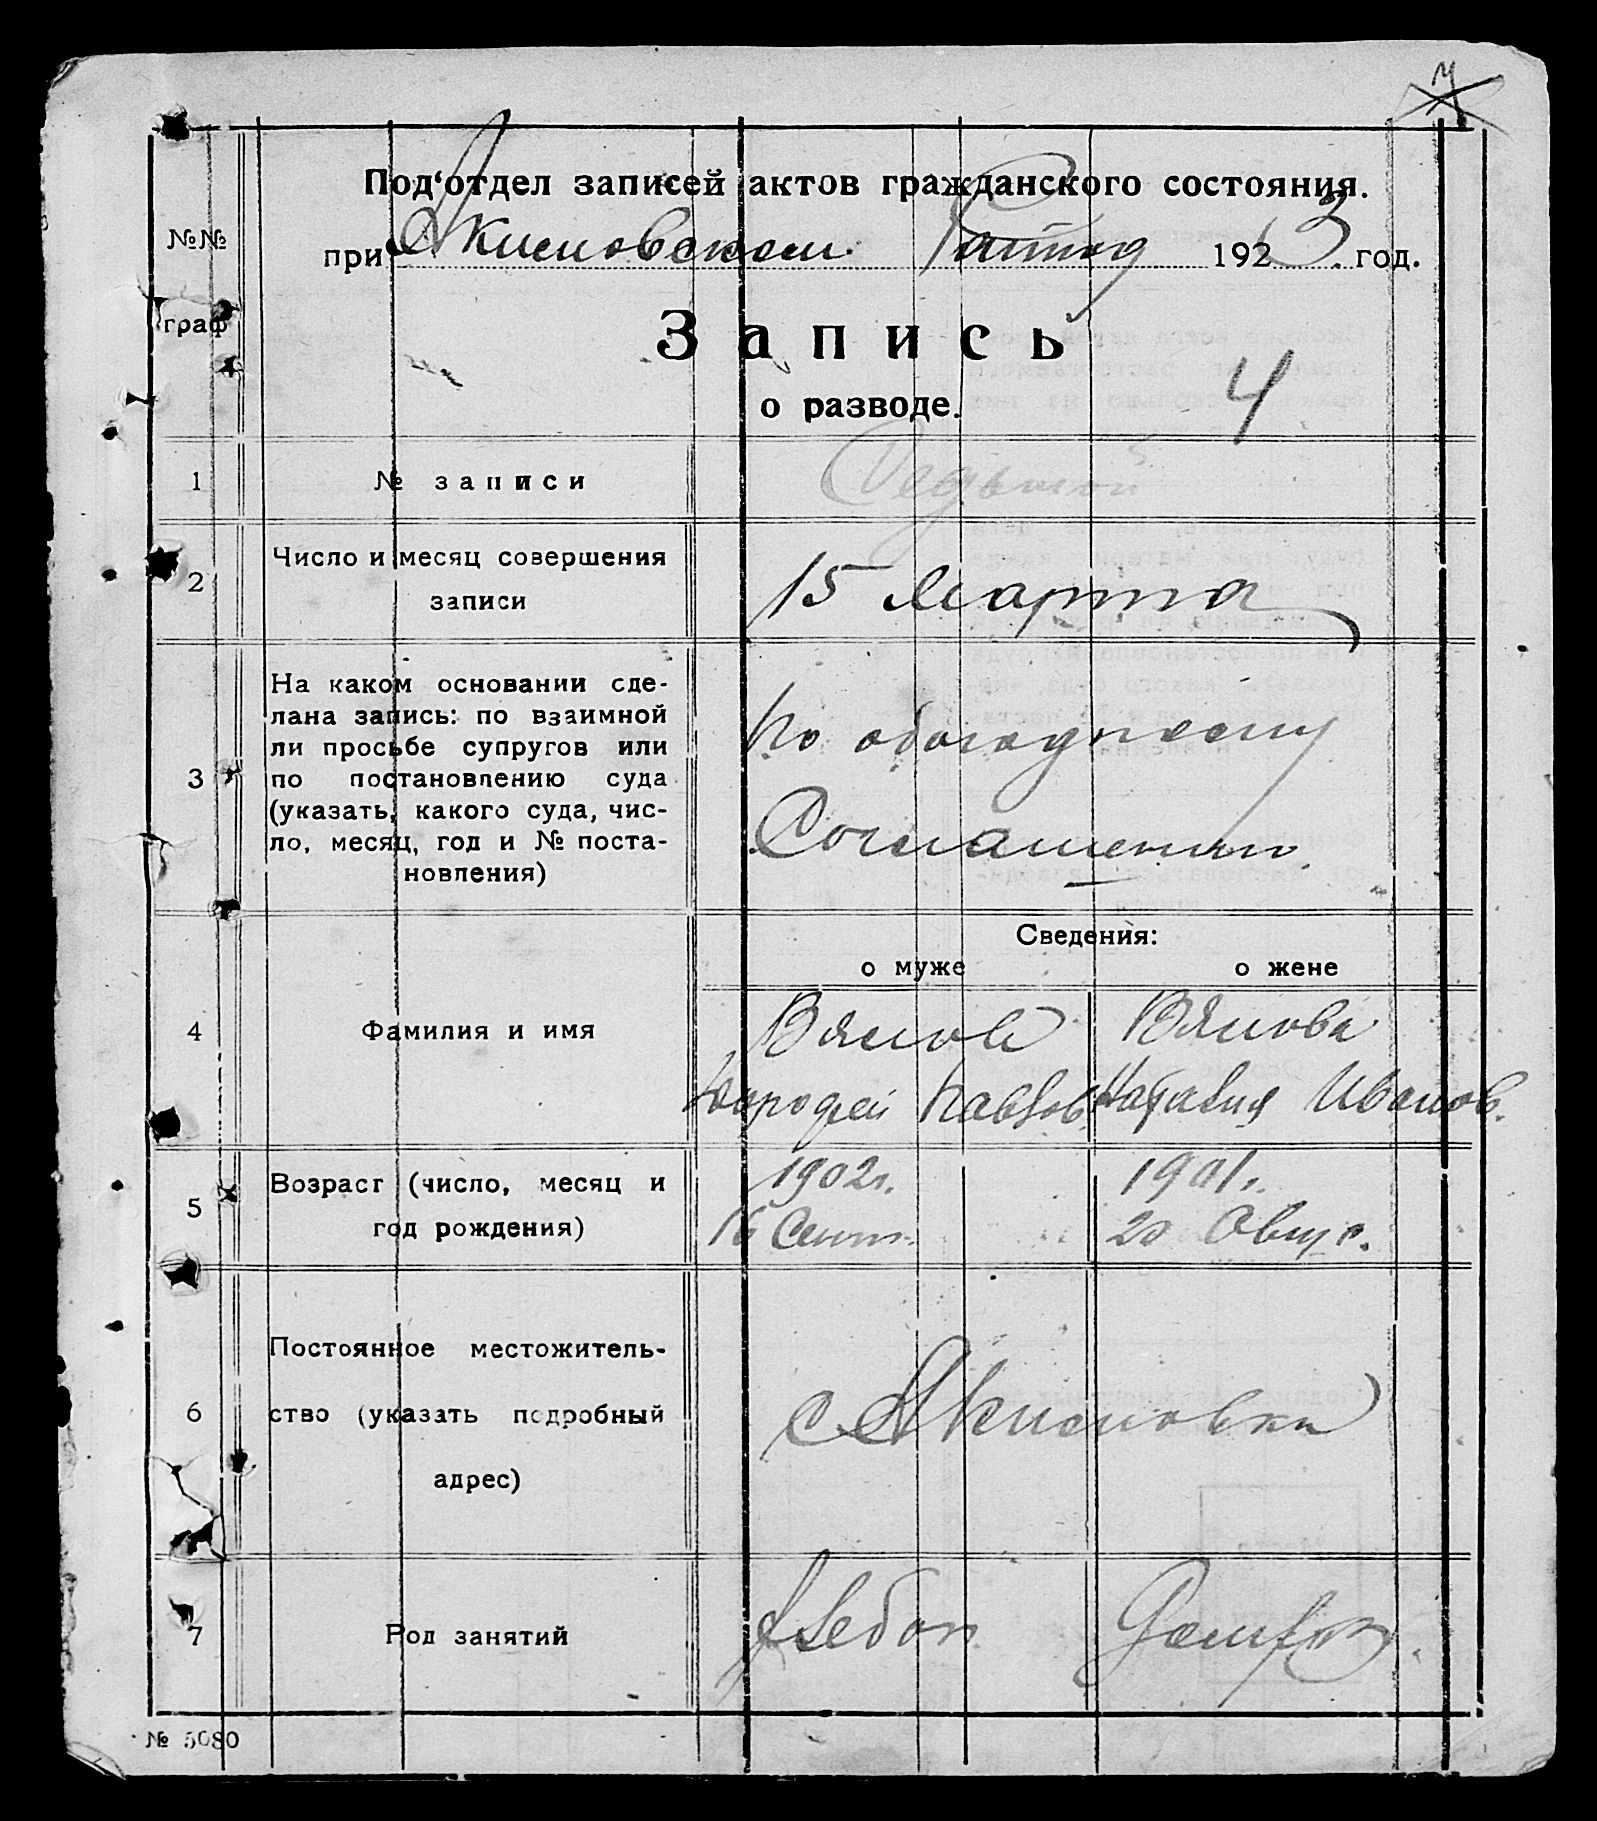 Под‘отдел записей актов гражданского состояния.
№№ граф
при Акимовском 1923 год.
Запись
о разводе.
4
1 № записи Седьмой
2 Число и месяц совершения
записи
15 Марта
3 На каком основании сде-
лана запись: по взаимной
ли просьбе супругов или
по постановлению суда
(указать, какого суда, чис-
ло, месяц, год и № поста-
новления)
По обоюдному
Соглашению.
Сведения:
о муже о жене
4 Фамилия и имя
Вялов Вялова
Дорофей Павлов. Наталия Иванов.
5 Возраст (число, месяц и
год рождения)
1902 г. 1901 г.
16 Сент. 20 Авгус.
6 Постоянное местожитель-
ство (указать подробный
адрес)
с Акимовка
7 Род занятий
Хлебоп Домхоз.
№ 5080